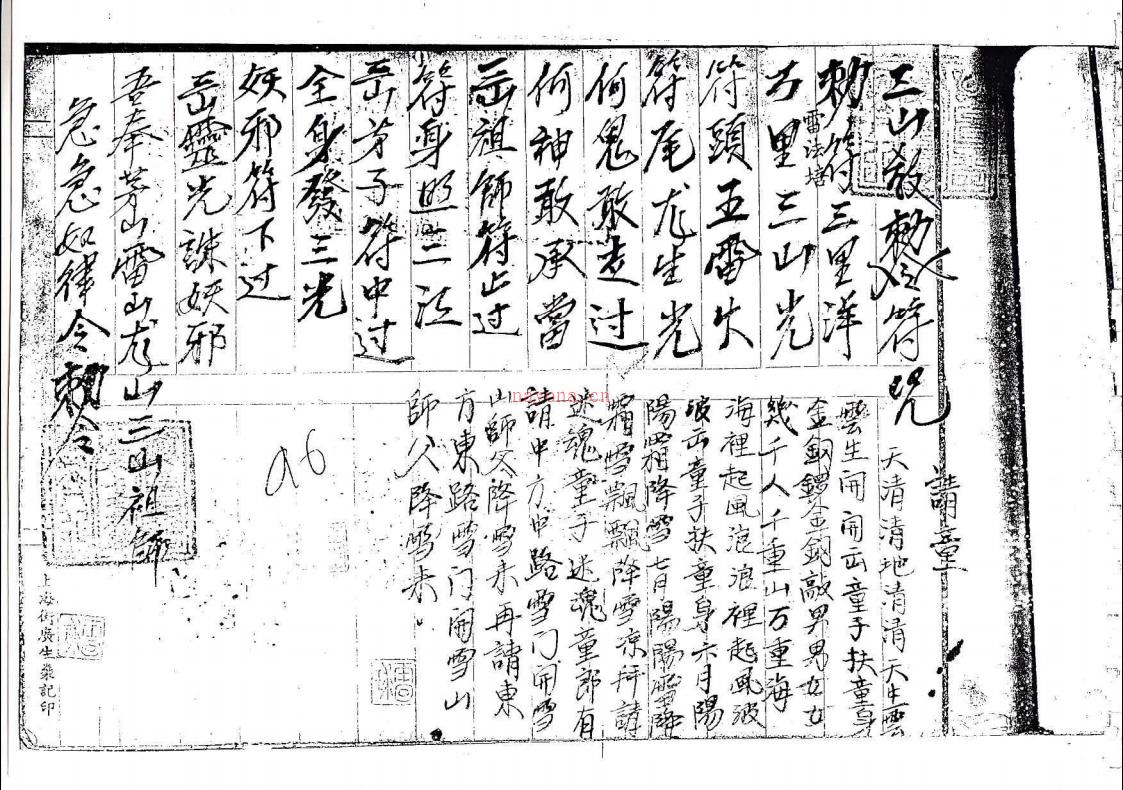 三山教勅令符咒
勅符三里洋
雷法堦
方里三山光
符頭五雷火
符尾尨生光
何鬼敢走过
何神敢承當
岳祖師符止过
符身照三江
岳芽子符中过
全身發三光
妖邪符下过
岳靈光誅妖邪
吾奉茅山雷山尨山三山祖師
急急如律令勅令
請童
天清清地清清天生雲
雲生開開岳童子扶童身
金銅鑼金銅敲男男女女
幾千人千重山万重海
海裡起風浪浪裡起風波
波岳童子扶童身六月陽
陽霜降雪七月陽陽霜降
霜雪飄飄降雪凉拜請
迷魂童子迷魂童郎有
請中方中路雪门開雪
山師父降雪来再請東
方東路雪门開雪山
師父降雪来
a6
nayona.cn
上海街廣生榮記印